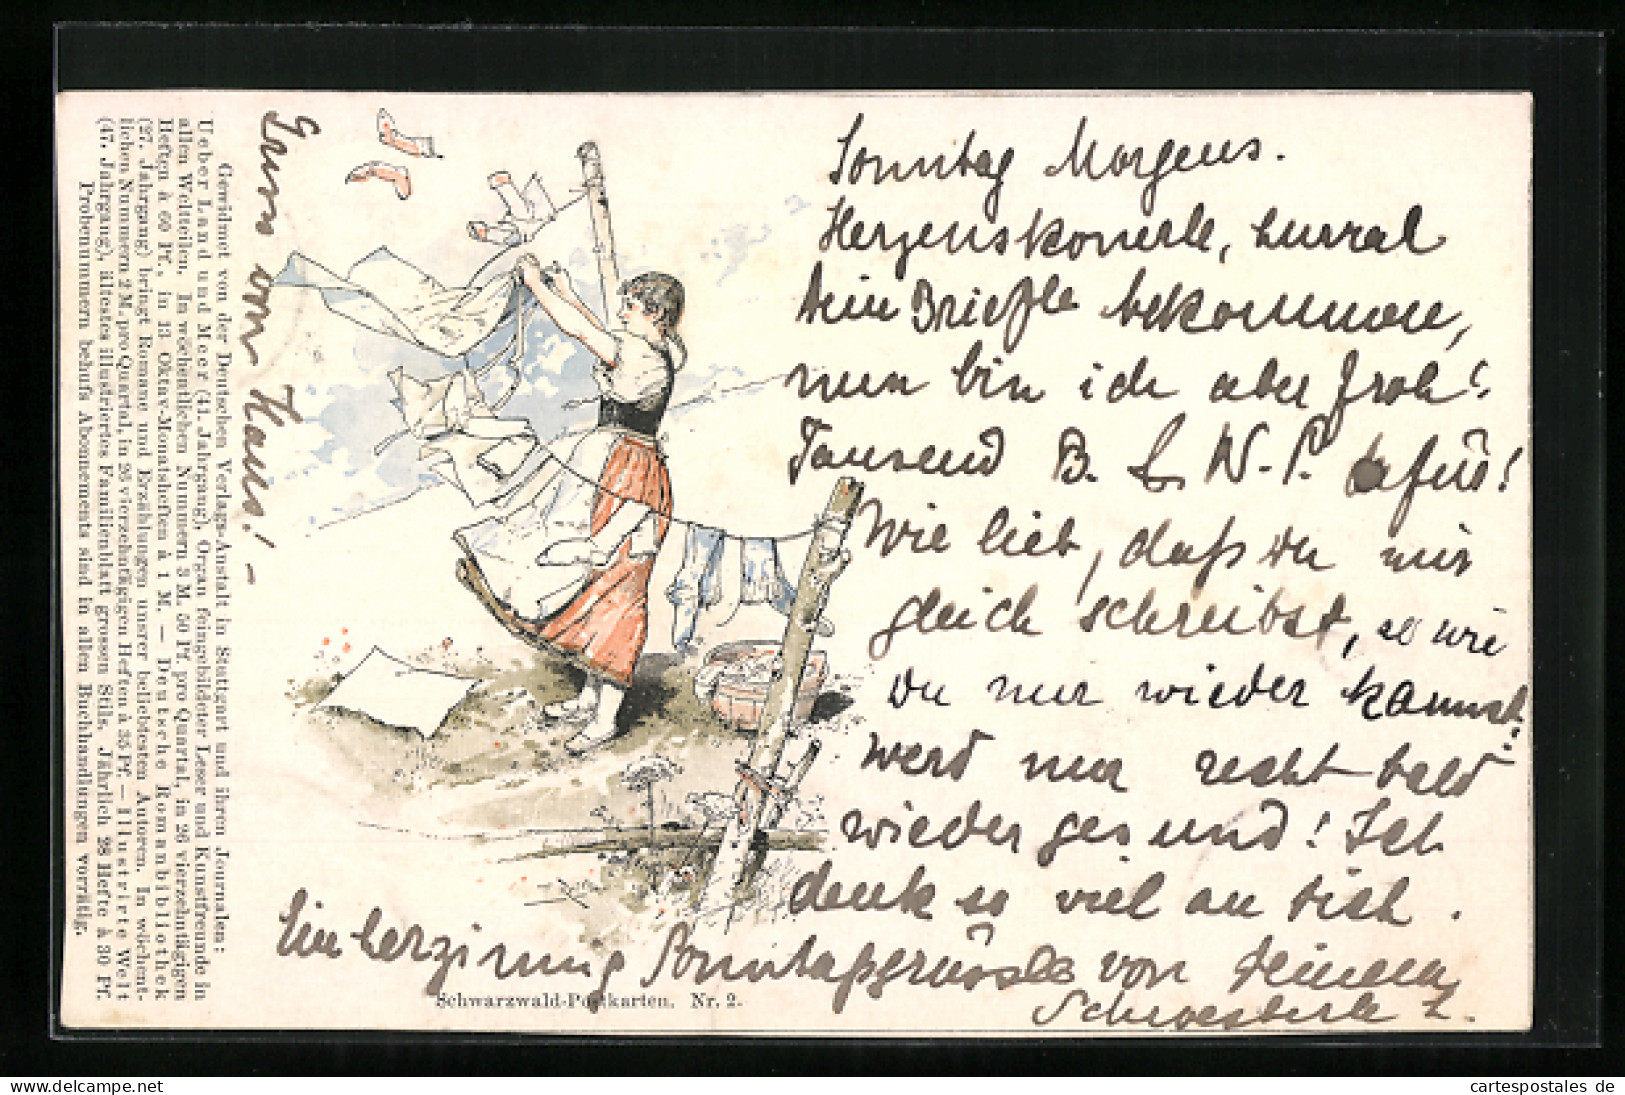 Sonntag Morgens.
Herzenskonerle, hurrah
dein Briefle bekommen,
nun bin ich aber froh!
Tausend B. L. N. P. dafür!
Wie lieb, daß du mir
gleich schreibst, so wie
du nur wieder kannst.
werd nur recht bald
wieder gesund! Ich
denk so viel an dich.
Ein herzinnig Sonntagsgrüssle von deinem
Schwesterle L.
von Haus! –
Gewidmet von der Deutschen Verlags-Anstalt in Stuttgart und ihren Journalen:
Ueber Land und Meer (41. Jahrgang), Organ feingebildeter Leser und Kunstfreunde in
allen Weltteilen. In wöchentlichen Nummern 3 M. 50 Pf. pro Quartal, in 26 vierzehntägigen
Heften à 60 Pf., in 13 Oktav-Monatsheften à 1 M. — Deutsche Romanbibliothek
(27. Jahrgang) bringt Romane und Erzählungen unsrer beliebtesten Autoren. In wöchent-
lichen Nummern 2 M. pro Quartal, in 26 vierzehntägigen Heften à 35 Pf. — Illustrirte Welt
(47. Jahrgang), ältestes illustriertes Familienblatt grossen Stils. Jährlich 28 Hefte à 30 Pf.
Probenummern behufs Abonnements sind in allen Buchhandlungen vorrätig.
Schwarzwald-Postkarten. Nr. 2.
bienchen52
cartespostales de